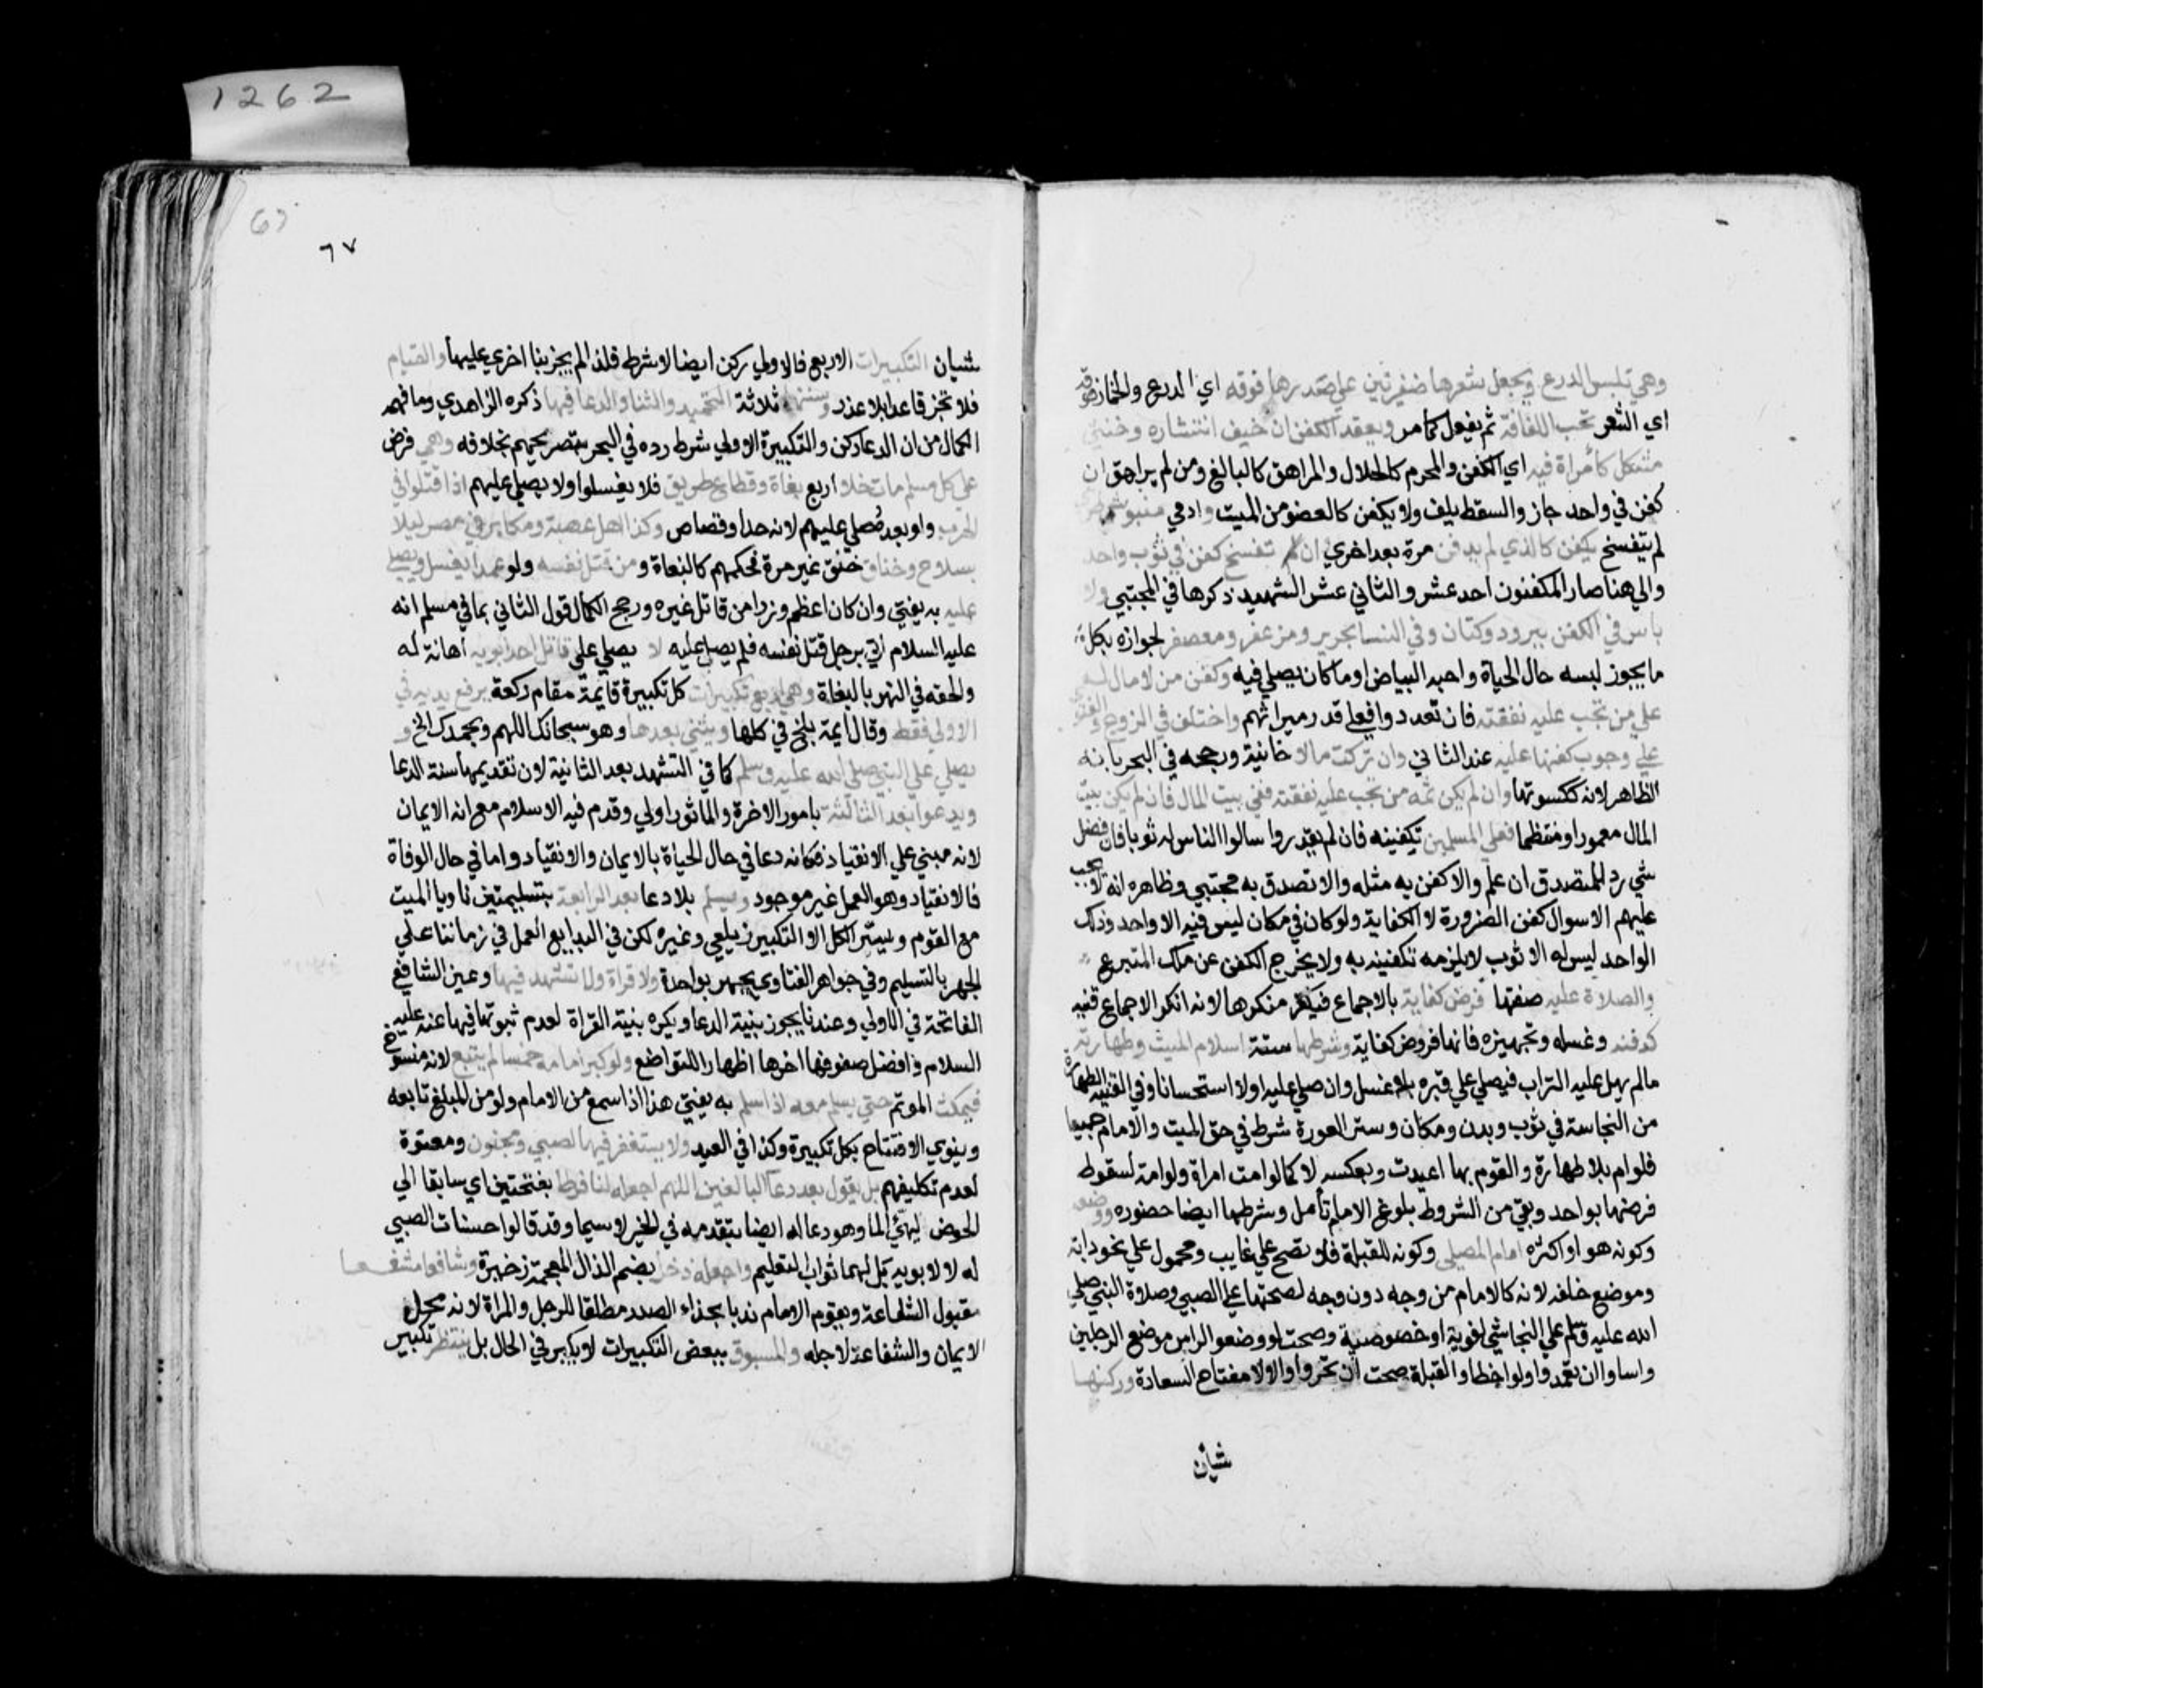 وهي تلبس الدرع ويجعل شعرها ضفيرتين علي صدرها فوقه اي الدرع والخمار فوقه
اي الشعر تحت اللفافة ثم يفعل كما مر ويعقد الكفن ان خيف انتشاره وخنثي
مشكل كامراة فيه اي الكفن والمحرم كالحلال والمراهق كالبالغ ومن لم يراهق ان
كفن في واحد جاز والسقط يلف ولا يكفن كالعضو من الميت وادمي منبوش طري
لم يتفسخ يكفن كالذي لم يدفن مرة بعد اخري وان تفسخ كفن في ثوب واحد
والي هنا صار المكفنون احد عشر والثاني عشر الشهيد ذكرها في المجتبي ولا
باس في الكفن ببرود وكتان وفي النسا بحرير ومزعفر ومعصفر لجوازه بكل
ما يجوز لبسه حال الحياة واحبه البياض او ما كان يصلي فيه وكفن من لا مال له
علي من تجب عليه نفقته فان تعددوا فعلي قدر ميراثهم واختلف في الزوج والفتوي
علي وجوب كفنها عليه عند الثاني وان تركت مالا خانية ورجحه في البحر بانه
الظاهر لانه ككسوتها وان لم يكن ثمه من تجب عليه نفقته ففي بيت المال فان لم يكن بيت
المال معمورا او منتظما فعلي المسلمين تكفينه فان لم يقدروا سالوا الناس له ثوبا فان فضل
شي رد للمتصدق ان علم والا كفن به مثله والا تصدق به مجتبي وظاهره انه لا يجب
عليهم الا سوال كفن الضرورة لا الكفاية ولو كان في مكان ليس فيه الا واحد وذلك
الواحد ليس له الا ثوب لا يلزمه تكفينه به ولا يخرج الكفن عن ملك المتبرع
والصلاة عليه صفتها فرض كفاية بالاجماع فيكفر منكرها لانه انكر الاجماع قنيه
كدفنه وغسله وتجهيزه فانها فروض كفاية وشرطها ستة اسلام الميت وطهارته
مالم يهل عليه التراب فيصلي علي قبره بلا غسل وان صلي عليه اولا استحسانا وفي القنية الطهارة
من النجاسة في ثوب وبدن ومكان وستر العورة شرط في حق الميت والامام جميعا
فلو ام بلا طهارة والقوم بها اعيدت وبعكسه لا كما لو امت امراة ولو امة لسقوط
فرضها بواحد وبقي من الشروط بلوغ الامام تأمل وشرطها ايضا حضوره ووضعه
وكونه هو او اكثره امام المصلي وكونه للقبلة فلا تصح علي غايب ومحمول علي نحو دابة
وموضع خلفه لانه كالامام من وجه دون وجه لصحتها علي الصبي وصلاة النبي صلي
الله عليه وسلم علي النجاشي لغوية او خصوصية وصحت لو وضعوا الراس موضع الرجلين
واساوا ان تعمدوا ولو اخطاوا القبلة صحت ان تحروا والا لا مفتاح السعادة وركنها
شيان
٦٧
شيان التكبيرات الاربع فالاولي ركن ايضا لا شرط فلذا لم يجز بنا اخري عليها والقيام
فلا تجز قاعدا بلا عذر وسننها ثلاثة التحميد والثنا والدعا فيها ذكره الزاهدي وما فهمه
الكمال من ان الدعا ركن والتكبيرة الاولي شرط رده في البحر بتصريحهم بخلافه وهي فرض
علي كل مسلم مات خلا اربع بغاة وقطاع طريق فلا يغسلوا ولا يصلي عليهم اذا قتلوا في
الحرب ولو بعده صلي عليهم لانه حد او قصاص وكذا اهل عصبة ومكابر في مصر ليلا
بسلاح وخناق خنق غير مرة فحكمهم كالبغاة ومن قتل نفسه ولو عمدا يغسل ويصلي
عليه به يفتي وان كان اعظم وزرا من قاتل غيره ورجح الكمال قول الثاني بما في مسلم انه
عليه السلام اتي برجل قتل نفسه فلم يصل عليه لا يصلي علي قاتل احد ابويه اهانة له
والحقه في النهر بالبغاة وهي اربع تكبيرات كل تكبيرة قايمة مقام ركعة يرفع يديه في
الاولي فقط وقال ايمة بلخ في كلها ويثني بعدها وهو سبحانك اللهم وبحمدك الخ و
يصلي علي النبي صلي الله عليه وسلم كما في التشهد بعد الثانية لان تقديمها سنة الدعا
ويدعوا بعد الثالثة بامور الاخرة والماثور اولي وقدم فيه الاسلام مع انه الايمان
لانه مبني علي الانقياد فكانه دعا في حال الحياة بالايمان والانقياد واما في حال الوفاة
فالانقياد وهو العمل غير موجود ويسلم بلا دعا بعد الرابعة بتسليمتين ناويا الميت
مع القوم ويسر الكل الا التكبير زيلعي وغيره لكن في البدايع العمل في زماننا علي
الجهر بالتسليم وفي جواهر الفتاوي يجهر بواحدة ولا قراة ولا تشهد فيها وعين الشافعي
الفاتحة في الاولي وعندنا يجوز بنية الدعا ويكره بنية القراة لعدم ثبوتها فيها عنه عليه
السلام وافضل صفوفها اخرها اظهارا للتواضع ولو كبر امامه خمسا لم يتبع لانه منسوخ
فيمكث الموتم حتي يسلم معه اذا سلم به يفتي هذا اذا سمع من الامام ولو من المبلغ تابعه
وينوي الافتتاح بكل تكبيرة وكذا في العيد ولا يستغفر فيها لصبي ومجنون ومعتوة
لعدم تكليفهم بل يقول بعد دعا البالغين اللهم اجعله لنا فرطا بفتحتين اي سابقا الي
الحوض ليهئ الما وهو دعا له ايضا بتقدمه في الخير لا سيما وقد قالوا حسنات الصبي
له لا لابويه بل لهما ثواب التعليم واجعله ذخرا بضم الذال المعجمة زخيرة وشافعا مشفعا
مقبول الشفاعة ويقوم الامام ندبا بحذاء الصدر مطلقا للرجل والمراة لانه محل
الايمان والشفاعة لاجله والمسبوق ببعض التكبيرات لا يكبر في الحال بل ينتظر تكبير
1262